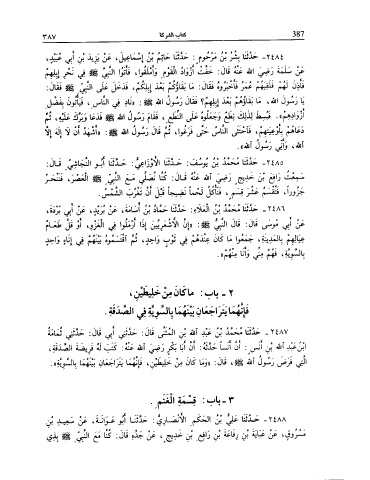 387 كتاب الشركة ٣٨٧
٢٤٨٤ - حَدَّثَنَا بِشْرُ بْنُ مَرْحُومٍ: حَدَّثَنَا حَاتِمُ بْنُ إِسْمَاعِيلَ، عَنْ يَزِيدَ بْنِ أَبِي عُبَيْدٍ،
عَنْ سَلَمَةَ رَضِيَ اللهُ عَنْهُ قَالَ: خَفَّتْ أَزْوَادُ الْقَوْمِ وَأَمْلَقُوا، فَأَتَوُا النَّبِيَّ ﷺ فِي نَحْرِ إِبِلِهِمْ
فَأَذِنَ لَهُمْ فَلَقِيَهُمْ عُمَرُ فَأَخْبَرُوهُ فَقَالَ: مَا بَقَاؤُكُمْ بَعْدَ إِبِلِكُمْ، فَدَخَلَ عَلَى النَّبِيِّ ﷺ فَقَالَ:
يَا رَسُولَ اللهِ، مَا بَقَاؤُهُمْ بَعْدَ إِبِلِهِمْ؟ فَقَالَ رَسُولُ اللهِ ﷺ: «نَادِ فِي النَّاسِ، فَيَأْتُونَ بِفَضْلِ
أَزْوَادِهِمْ». فَبُسِطَ لِذٰلِكَ نِطَعٌ وَجَعَلُوهُ عَلَى النِّطَعِ، فَقَامَ رَسُولُ اللهِ ﷺ فَدَعَا وَبَرَّكَ عَلَيْهِ، ثُمَّ
دَعَاهُمْ بِأَوْعِيَتِهِمْ، فَاحْتَثَى النَّاسُ حَتَّى فَرَغُوا، ثُمَّ قَالَ رَسُولُ اللهِ ﷺ: «أَشْهَدُ أَنْ لَا إِلٰهَ إِلَّا
اللهُ، وَأَنِّي رَسُولُ اللهِ».
٢٤٨٥ - حَدَّثَنَا مُحَمَّدُ بْنُ يُوسُفَ: حَدَّثَنَا الْأَوْزَاعِيُّ: حَدَّثَنَا أَبُو النَّجَاشِيِّ قَالَ:
سَمِعْتُ رَافِعَ بْنَ خَدِيجٍ رَضِيَ اللهُ عَنْهُ قَالَ: كُنَّا نُصَلِّي مَعَ النَّبِيِّ ﷺ الْعَصْرَ، فَنَنْحَرُ
جَزُوراً، فَتُقْسَمُ عَشْرَ قِسَمٍ، فَنَأْكُلُ لَحْماً نَضِيجاً قَبْلَ أَنْ تَغْرُبَ الشَّمْسُ.
٢٤٨٦ - حَدَّثَنَا مُحَمَّدُ بْنُ الْعَلَاءِ: حَدَّثَنَا حَمَّادُ بْنُ أُسَامَةَ، عَنْ بُرَيْدٍ، عَنْ أَبِي بُرْدَةَ،
عَنْ أَبِي مُوسَى قَالَ: قَالَ النَّبِيُّ ﷺ: «إِنَّ الْأَشْعَرِيِّينَ إِذَا أَرْمَلُوا فِي الْغَزْوِ، أَوْ قَلَّ طَعَامُ
عِيَالِهِمْ بِالْمَدِينَةِ، جَمَعُوا مَا كَانَ عِنْدَهُمْ فِي ثَوْبٍ وَاحِدٍ، ثُمَّ اقْتَسَمُوهُ بَيْنَهُمْ فِي إِنَاءٍ وَاحِدٍ
بِالسَّوِيَّةِ، فَهُمْ مِنِّي وَأَنَا مِنْهُمْ».
٢ - باب: مَا كَانَ مِنْ خَلِيطَيْنِ،
فَإِنَّهُمَا يَتَرَاجَعَانِ بَيْنَهُمَا بِالسَّوِيَّةِ فِي الصَّدَقَةِ.
٢٤٨٧ - حَدَّثَنَا مُحَمَّدُ بْنُ عَبْدِ اللهِ بْنِ الْمُثَنَّى قَالَ: حَدَّثَنِي أَبِي قَالَ: حَدَّثَنِي ثُمَامَةُ
ابْنُ عَبْدِ اللهِ بْنِ أَنَسٍ: أَنَّ أَنَساً حَدَّثَهُ: أَنَّ أَبَا بَكْرٍ رَضِيَ اللهُ عَنْهُ: كَتَبَ لَهُ فَرِيضَةَ الصَّدَقَةِ،
الَّتِي فَرَضَ رَسُولُ اللهِ ﷺ، قَالَ: «وَمَا كَانَ مِنْ خَلِيطَيْنِ، فَإِنَّهُمَا يَتَرَاجَعَانِ بَيْنَهُمَا بِالسَّوِيَّةِ».
٣ - باب: قِسْمَةِ الْغَنَمِ.
٢٤٨٨ - حَدَّثَنَا عَلِيُّ بْنُ الْحَكَمِ الْأَنْصَارِيُّ: حَدَّثَنَا أَبُو عَوَانَةَ، عَنْ سَعِيدِ بْنِ
مَسْرُوقٍ، عَنْ عَبَايَةَ بْنِ رِفَاعَةَ بْنِ رَافِعِ بْنِ خَدِيجٍ، عَنْ جَدِّهِ قَالَ: كُنَّا مَعَ النَّبِيِّ ﷺ بِذِي